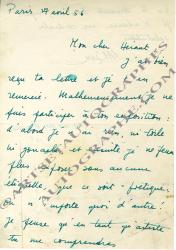 Paris, 17 avril 56
Mon cher Herant
J'ai bien
reçu ta lettre et je t'en
remercie. Malheureusement je ne
peux participer à ton exposition :
d'abord je n'ai rien, ni toile
ni gouache, et ensuite je ne
plus poser sans aucune
étiquette que ce soit "poétique"
ou n'importe quoi d'autre !
Je pense qu'en tant qu'artiste
tu me comprendras